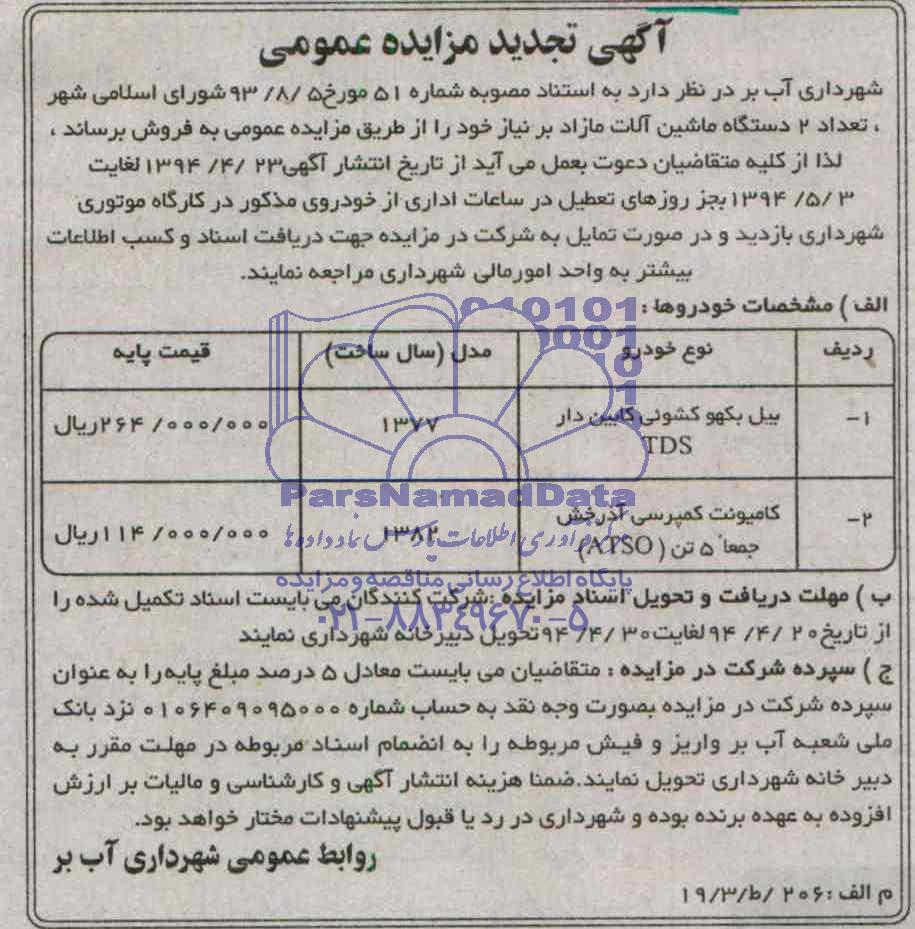 آگهی تجدید مزایده عمومی
شهرداری آب بر در نظر دارد به استناد مصوبه شماره ۵۱ مورخ۵ /۸/ ۹۳ شورای اسلامی شهر
، تعداد ۲ دستگاه ماشین آلات مازاد بر نیاز خود را از طریق مزایده عمومی به فروش برساند ،
لذا از کلیه متقاضیان دعوت بعمل می آید از تاریخ انتشار آگهی۲۳ /۴/ ۱۳۹۴ لغایت
۳ /۵/ ۱۳۹۴بجز روزهای تعطیل در ساعات اداری از خودروی مذکور در کارگاه موتوری
شهرداری بازدید و در صورت تمایل به شرکت در مزایده جهت دریافت اسناد و کسب اطلاعات
بیشتر به واحد امورمالی شهرداری مراجعه نمایند.
الف ) مشخصات خودروها :
ردیف نوع خودرو مدل (سال ساخت) قیمت پایه
۱- بیل بکهو کشوئی کابین دار TDS ۱۳۷۷ ۲۶۴ /۰۰۰/۰۰۰ریال
۲- کامیونت کمپرسی آذرخش جمعاً ۵ تن ( ATSO) ۱۳۸۲ ۱۱۴ /۰۰۰/۰۰۰ریال
ParsNamadData
فرآوری اطلاعات پارس نماد داده ها
پایگاه اطلاع رسانی مناقصه و مزایده
ب ) مهلت دریافت و تحویل اسناد مزایده :شرکت کنندگان می بایست اسناد تکمیل شده را
۰۲۱-۸۸۳۴۹۶۷۰-۵
از تاریخ۲۰ /۴/ ۹۴ لغایت۳۰ /۴/ ۹۴ تحویل دبیرخانه شهرداری نمایند
ج ) سپرده شرکت در مزایده : متقاضیان می بایست معادل ۵ درصد مبلغ پایه را به عنوان
سپرده شرکت در مزایده بصورت وجه نقد به حساب شماره ۰۱۰۶۴۰۹۰۹۵۰۰۰ نزد بانک
ملی شعبه آب بر واریز و فیش مربوطه را به انضمام اسناد مربوطه در مهلت مقرر به
دبیر خانه شهرداری تحویل نمایند.ضمنا هزینه انتشار آگهی و کارشناسی و مالیات بر ارزش
افزوده به عهده برنده بوده و شهرداری در رد یا قبول پیشنهادات مختار خواهد بود.
روابط عمومی شهرداری آب بر
م الف :۲۰۶ /ط/۱۹/۳